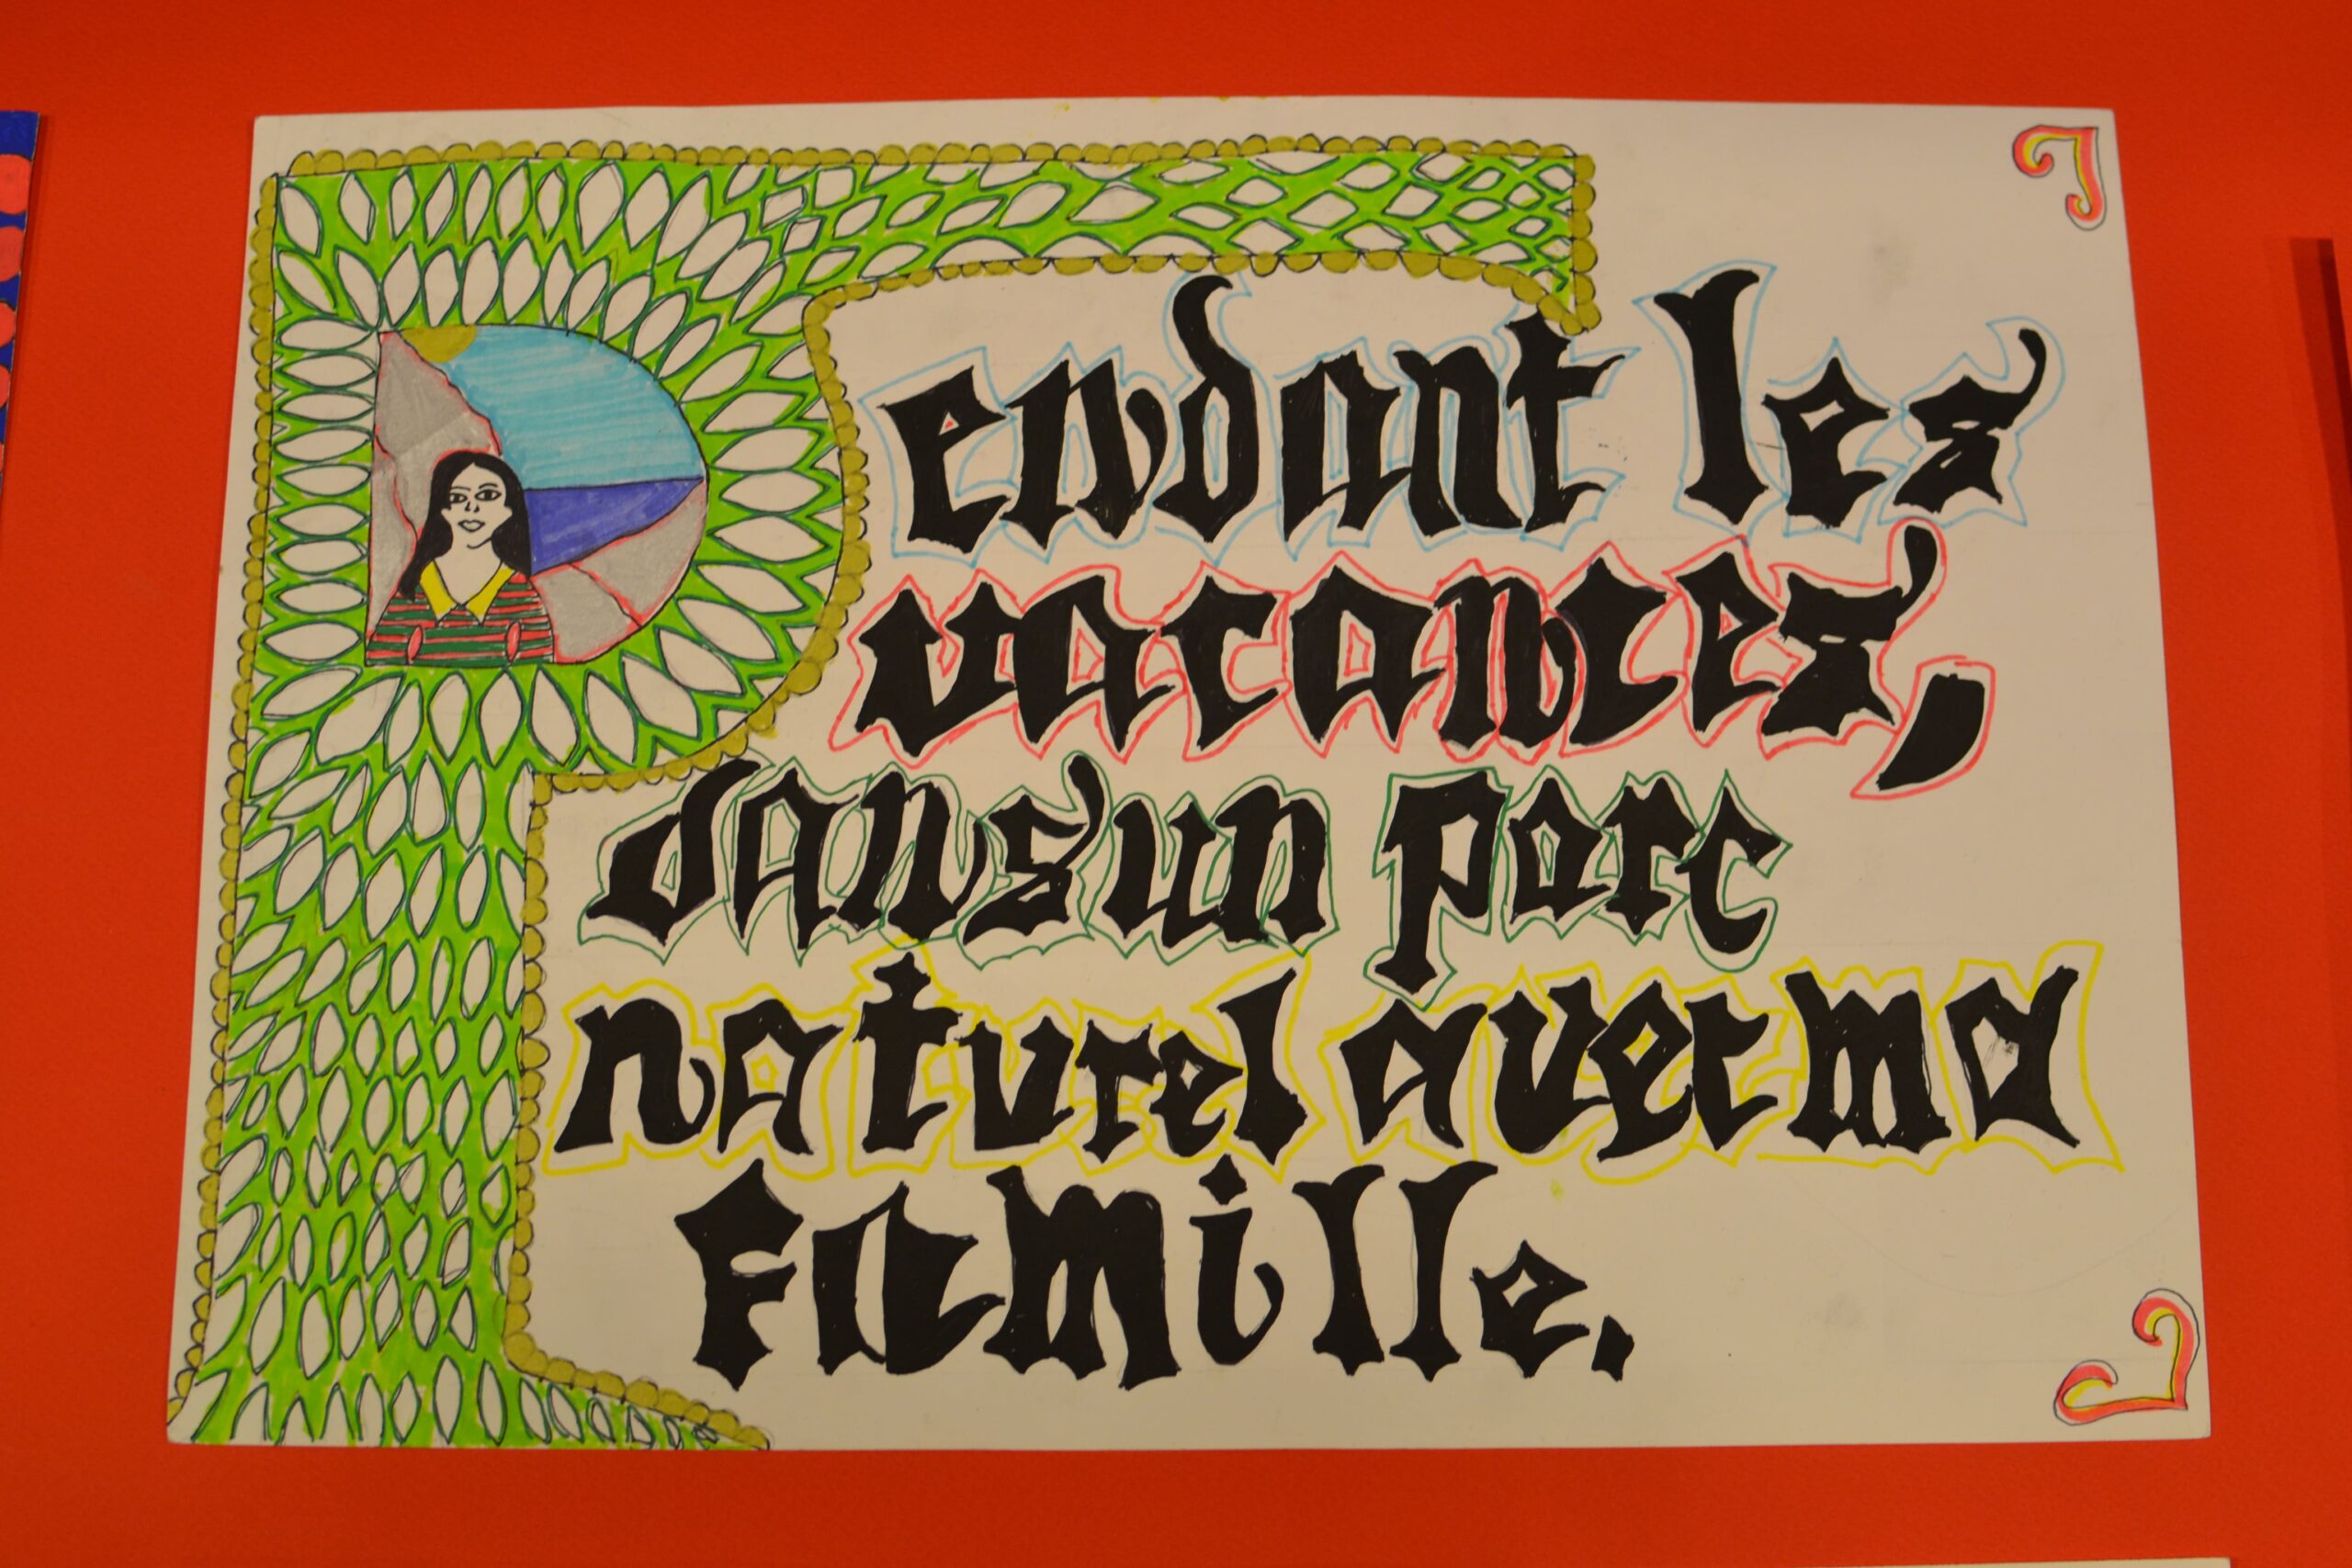 Pendant les
vacances,
dans un parc
naturel avec ma
famille.